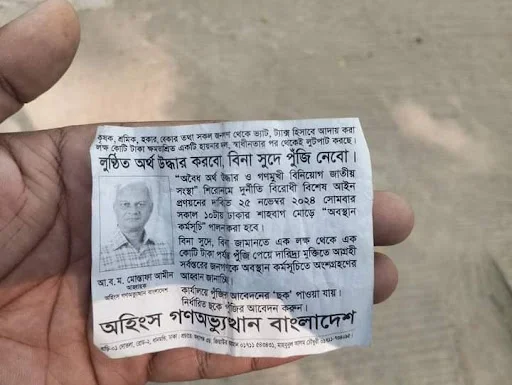 কৃষক, শ্রমিক, হকার, বেকার তথা সকল জনগণ থেকে ভ্যাট, ট্যাক্স হিসাবে আদায় করা
লক্ষ কোটি টাকা ক্ষমতাশ্রিত একটি হায়নার দল, স্বাধীনতার পর থেকেই লুটপাট করছে।
লুণ্ঠিত অর্থ উদ্ধার করবো, বিনা সুদে পুঁজি নেবো।
“অবৈধ অর্থ উদ্ধার ও গণমুখী বিনিয়োগ জাতীয়
সংস্থা” শিরোনমে দুর্নীতি বিরোধী বিশেষ আইন
প্রণয়নের দাবিত ২৫ নভেম্বর ২০২৪ সোমবার
সকাল ১০টায় ঢাকার শাহবাগ মোড়ে “অবস্থান
কর্মসূচি” পালনকরা হবে।
বিনা সুদে, বিনা জামানতে এক লক্ষ থেকে এক
কোটি টাকা পর্যন্ত পুঁজি পেয়ে দারিদ্র্য মুক্তিতে অগ্রহী
সর্বস্তরের জনগণকে অবস্থান কর্মসূচিতে অংশগ্রহণের
আহ্বান জানাচ্ছি।
আ.ব.ম. মোস্তাফা আমীন
আহ্বায়ক
অহিংস গণঅভ্যুত্থান বাংলাদেশ
কার্যালয়ে পুঁজির আবেদনের 'ছক' পাওয়া যায়।
নির্ধারিত ছকে পুঁজির আবেদন করুন।
অহিংস গণঅভ্যুত্থান বাংলাদেশ